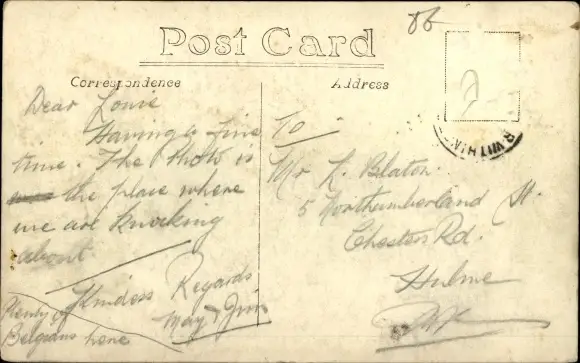 Post Card
Correspondence
Address
Dear Louie
Having a fine
time. The Photo is
the place where
we are knocking
about
Kindess Regards
May & Jim
Plenty of
Belgians here
To
Mr L. Blaton.
5 Northumberland St.
Chester Rd.
Hulme
M/C
R WITHIN